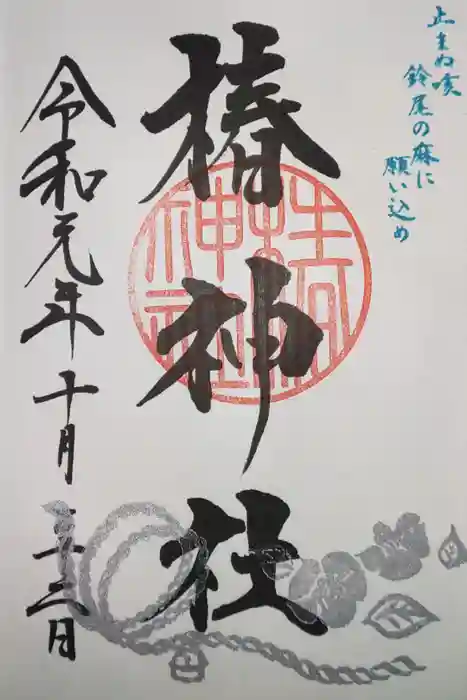 止まぬ咳
鈴尾の麻に
願い込め
椿神社
令和元年十月二十三日